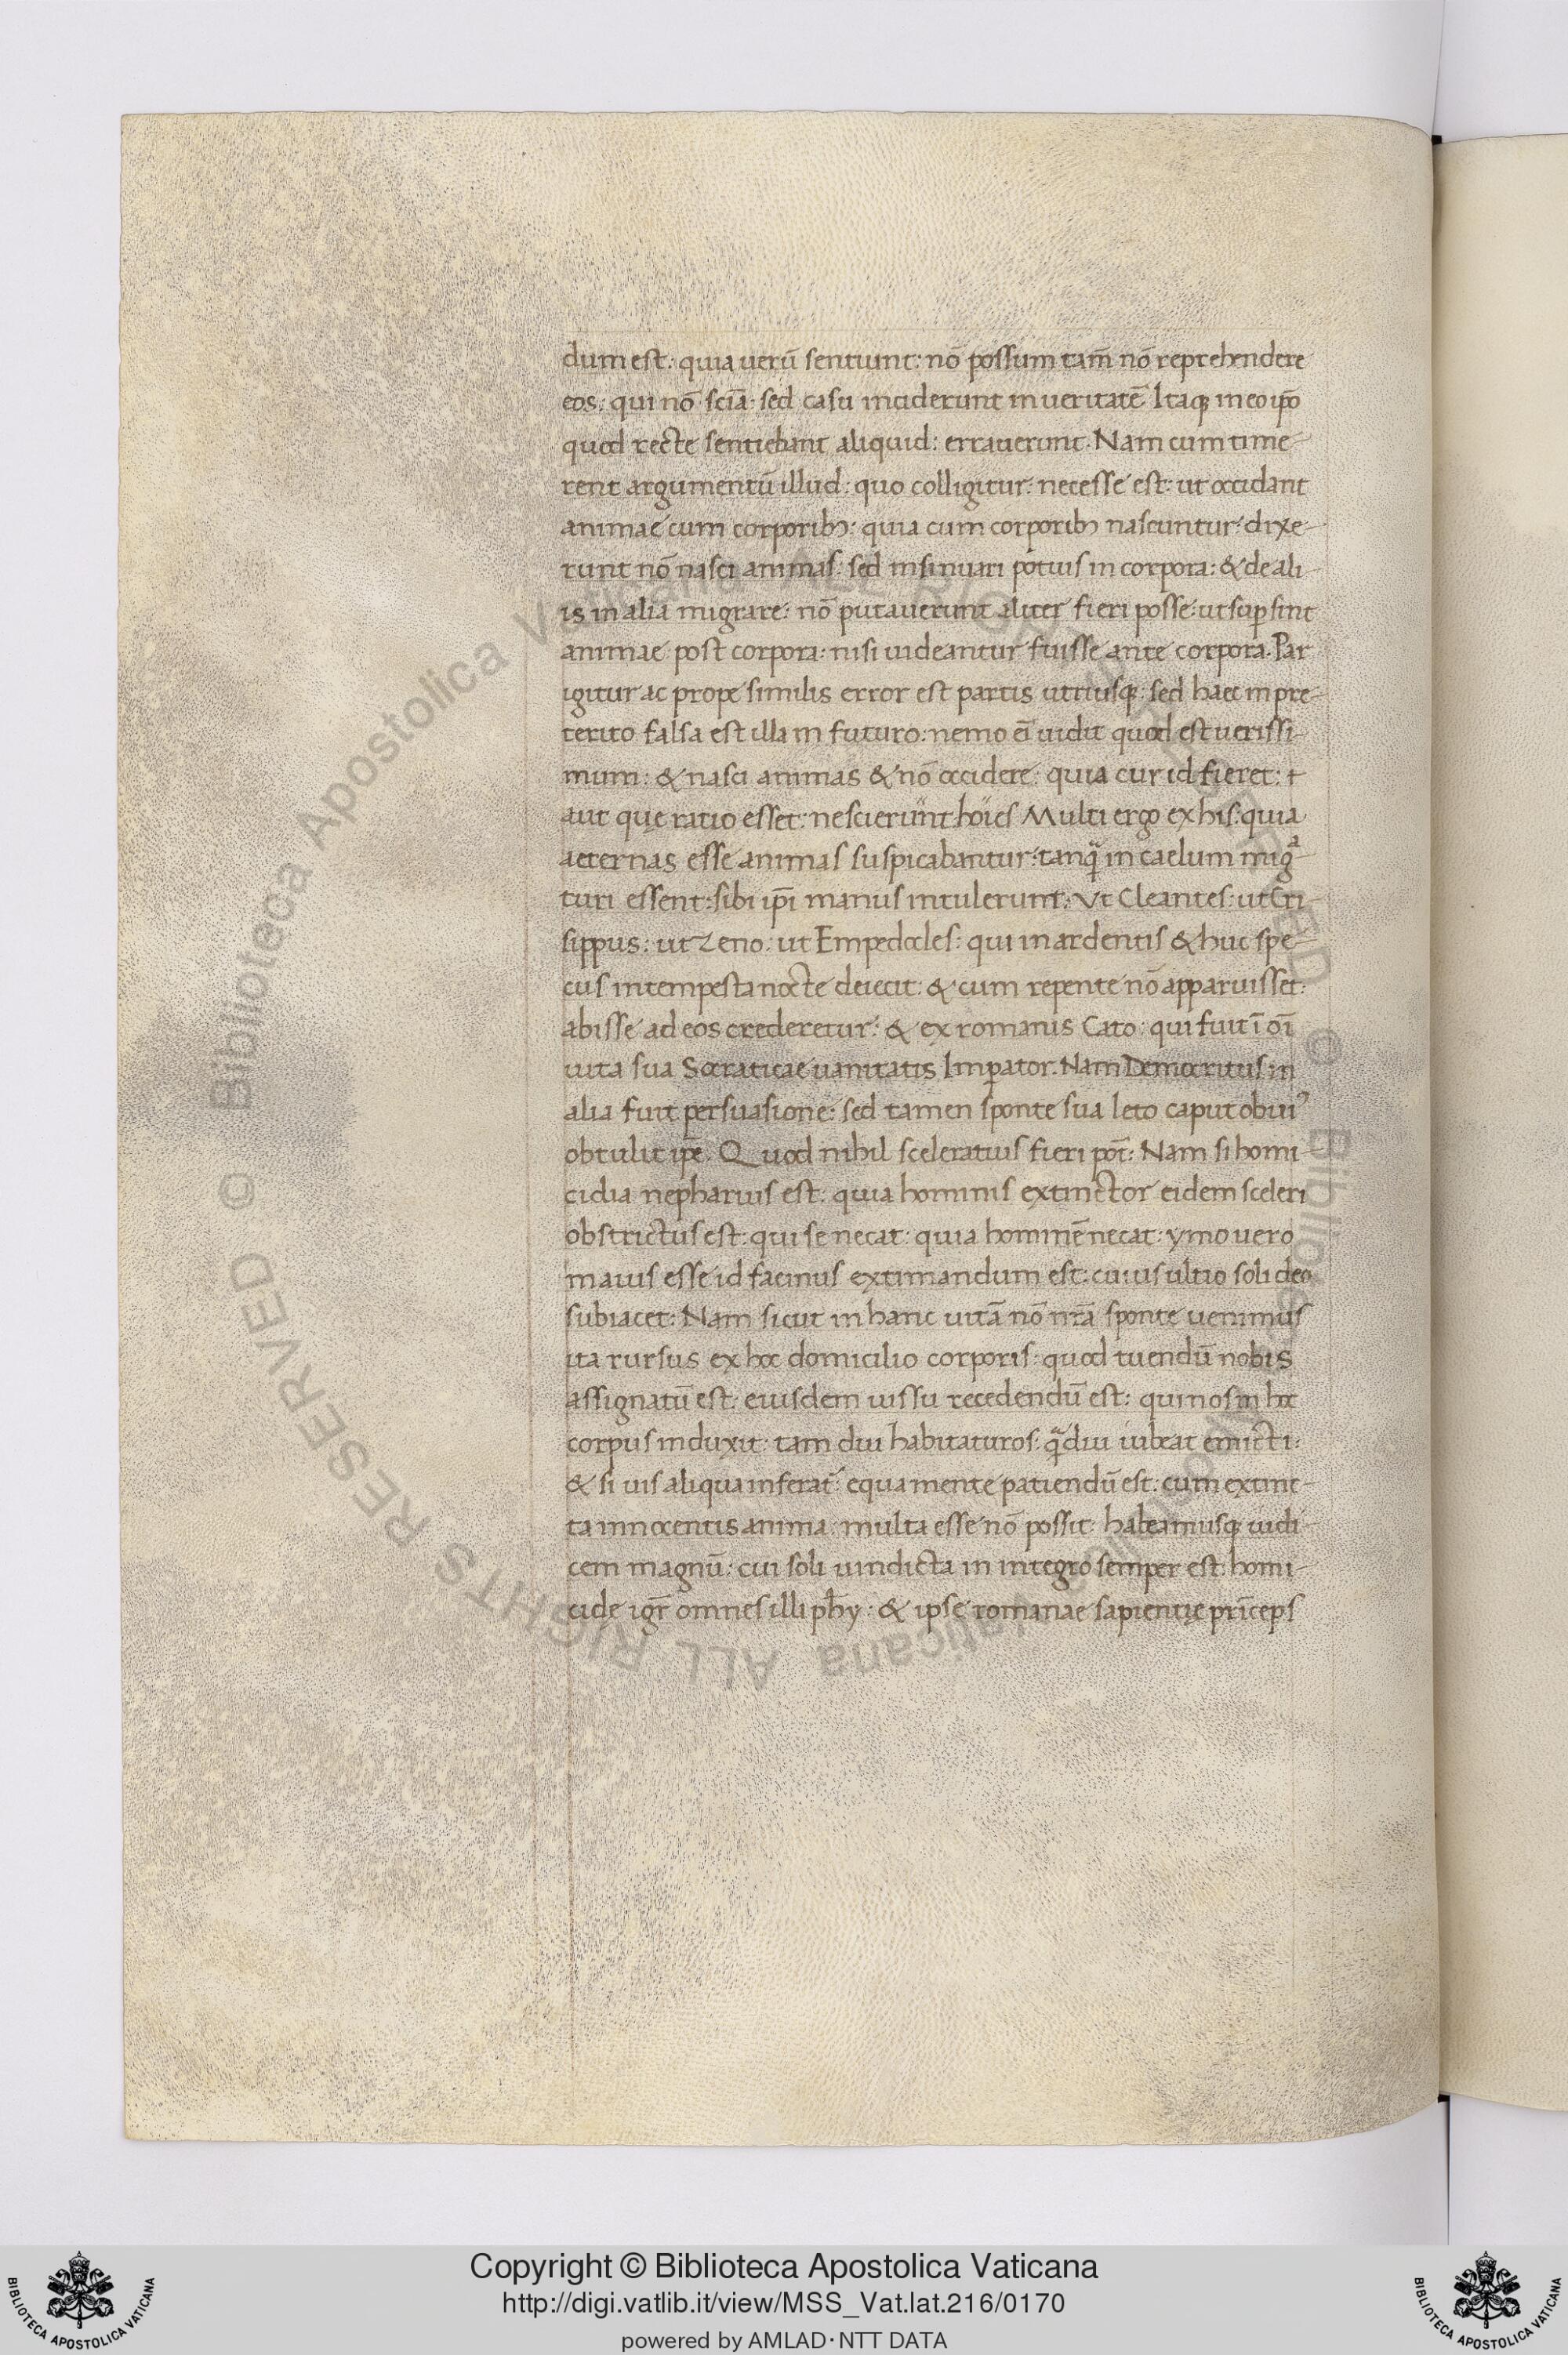 dum est: quia uerū sentiunt: nō possum tam̄ nō reprehendere
eos: qui nō scīa: sed casu inciderunt in ueritatē Itaq; in eo ip̄o
quod recte sentiebant aliquid: errauerunt. Nam cum time-
rent argumentū illud: quo colligitur: necesse est: ut occidant
animae cum corporibꝫ: quia cum corporibꝫ nascuntur: dixe-
runt nō nasci animas: sed insinuari potius in corpora: & de ali-
is in alia migrare: nō putauerunt aliter fieri posse: ut suꝑsint
animae post corpora: nisi uideantur fuisse ante corpora. Par
igitur ac prope similis error est partis utriusq; sed haec in pre-
terito falsa est illa in futuro: nemo ei̅ uidit quod est uerissi-
mum: & nasci animas & nō occidere: quia cur id fieret: t
aut quę ratio esset: nescierunt hoīes Multi ergo ex his: quia
aeternas esse animas suspicabantur: tanqͣ in caelum migͣ-
turi essent: sibi ip̄i manus intulerunt: Vt Cleantes: ut Cri-
sippus: ut Zeno: ut Empedocles: qui in ardentis & huc spe-
cus intempesta nocte deiecit: & cum repente nō apparuisset:
abisse ad eos crederetur: & ex romanis Cato: qui fuit ī oī
uita sua Socraticae uanitatis Imꝑator. Nam Democritus in
alia fuit persuasione: sed tamen sponte sua leto caput obuiꝰ
obtulit ip̄e. Quod nihil sceleratius fieri pōt: Nam si homi-
cidia nepharius est: quia hominis extinctor eidem sceleri
obstrictus est: qui se necat: quia hominē necat: ymo uero
maius esse id facinus extimandum est: cuius ultio soli deo
subiacet: Nam sicut in hanc uitā nō nr̄a sponte uenimus
ita rursus ex hoc domicilio corporis: quod tuendū nobis
assignatū est: eiusdem iussu recedendū est: qui nos in hoc
corpus induxit: tam diu habitaturos: qͣdiu iubeat emicti:
& si uis aliqua inferat᷑: equa mente patiendū est: cum extinc-
ta innocentis anima: multa esse nō possit: habeamusq; iudi-
cem magnū: cui soli uindicta in integro semper est: homi-
cidę igr̄ omnes illi ph̄y: & ipse romanae sapientię prīceps
© Biblioteca Apostolica Vaticana ALL RIGHTS RESERVED
© Biblioteca Apostolica Vaticana ALL RIGHTS RESERVED
Copyright © Biblioteca Apostolica Vaticana
http://digi.vatlib.it/view/MSS_Vat.lat.216/0170
powered by AMLAD·NTT DATA
BIBLIOTECA APOSTOLICA VATICANA
BIBLIOTECA APOSTOLICA VATICANA